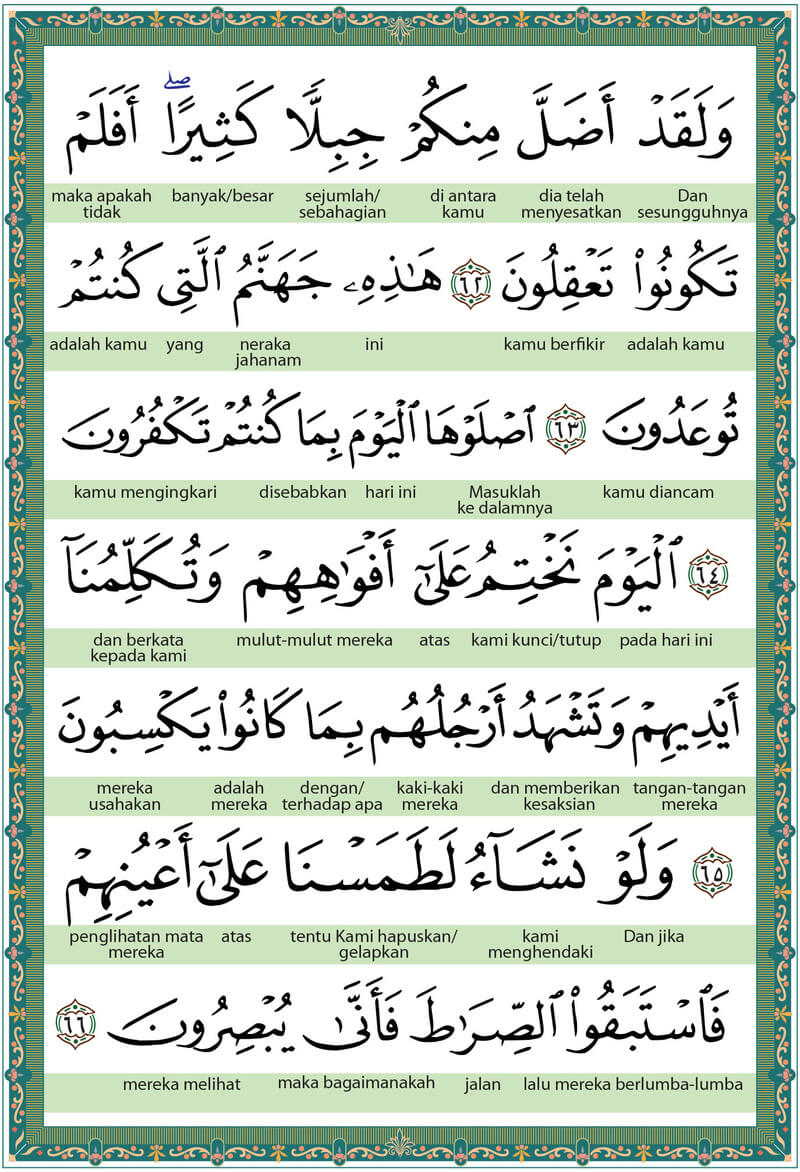 وَلَقَدْ أَضَلَّ مِنكُمْ جِبِلًّا كَثِيرًا ۖ أَفَلَمْ
Dan sesungguhnya dia telah menyesatkan di antara kamu sejumlah/ sebahagian banyak/besar maka apakah tidak
تَكُونُوا۟ تَعْقِلُونَ ٦٢ هَـٰذِهِۦ جَهَنَّمُ ٱلَّتِى كُنتُمْ
adalah kamu kamu berfikir ini neraka jahanam yang adalah kamu
تُوعَدُونَ ٦٣ ٱصْلَوْهَا ٱلْيَوْمَ بِمَا كُنتُمْ تَكْفُرُونَ
kamu diancam Masuklah ke dalamnya hari ini disebabkan kamu mengingkari
٦٤ ٱلْيَوْمَ نَخْتِمُ عَلَىٰٓ أَفْوَٰهِهِمْ وَتُكَلِّمُنَآ
pada hari ini kami kunci/tutup atas mulut-mulut mereka dan berkata kepada kami
أَيْدِيهِمْ وَتَشْهَدُ أَرْجُلُهُم بِمَا كَانُوا۟ يَكْسِبُونَ
tangan-tangan mereka dan memberikan kesaksian kaki-kaki mereka dengan/ terhadap apa adalah mereka mereka usahakan
٦٥ وَلَوْ نَشَآءُ لَطَمَسْنَا عَلَىٰٓ أَعْيُنِهِمْ
Dan jika kami menghendaki tentu Kami hapuskan/ gelapkan atas penglihatan mata mereka
فَٱسْتَبَقُوا۟ ٱلصِّرَٰطَ فَأَنَّىٰ يُبْصِرُونَ ٦٦
lalu mereka berlumba-lumba jalan maka bagaimanakah mereka melihat